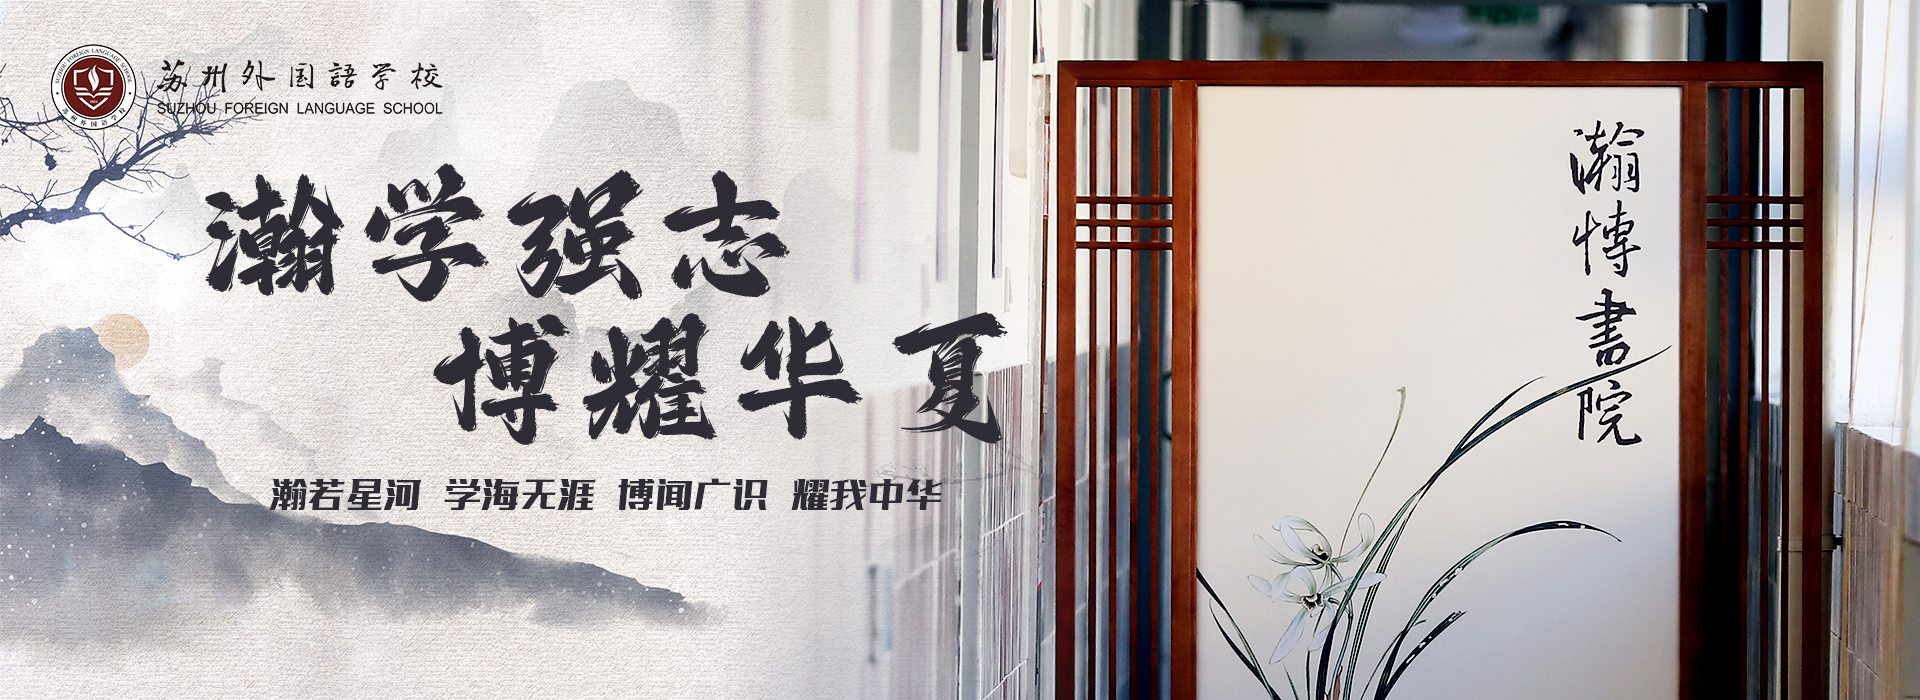 苏州外国語学校
SUZHOU FOREIGN LANGUAGE SCHOOL
SUZHOU FOREIGN LANGUAGE SCHOOL
苏州外国语学校
瀚学强志
博耀华夏
瀚若星河 学海无涯 博闻广识 耀我中华
瀚博書院